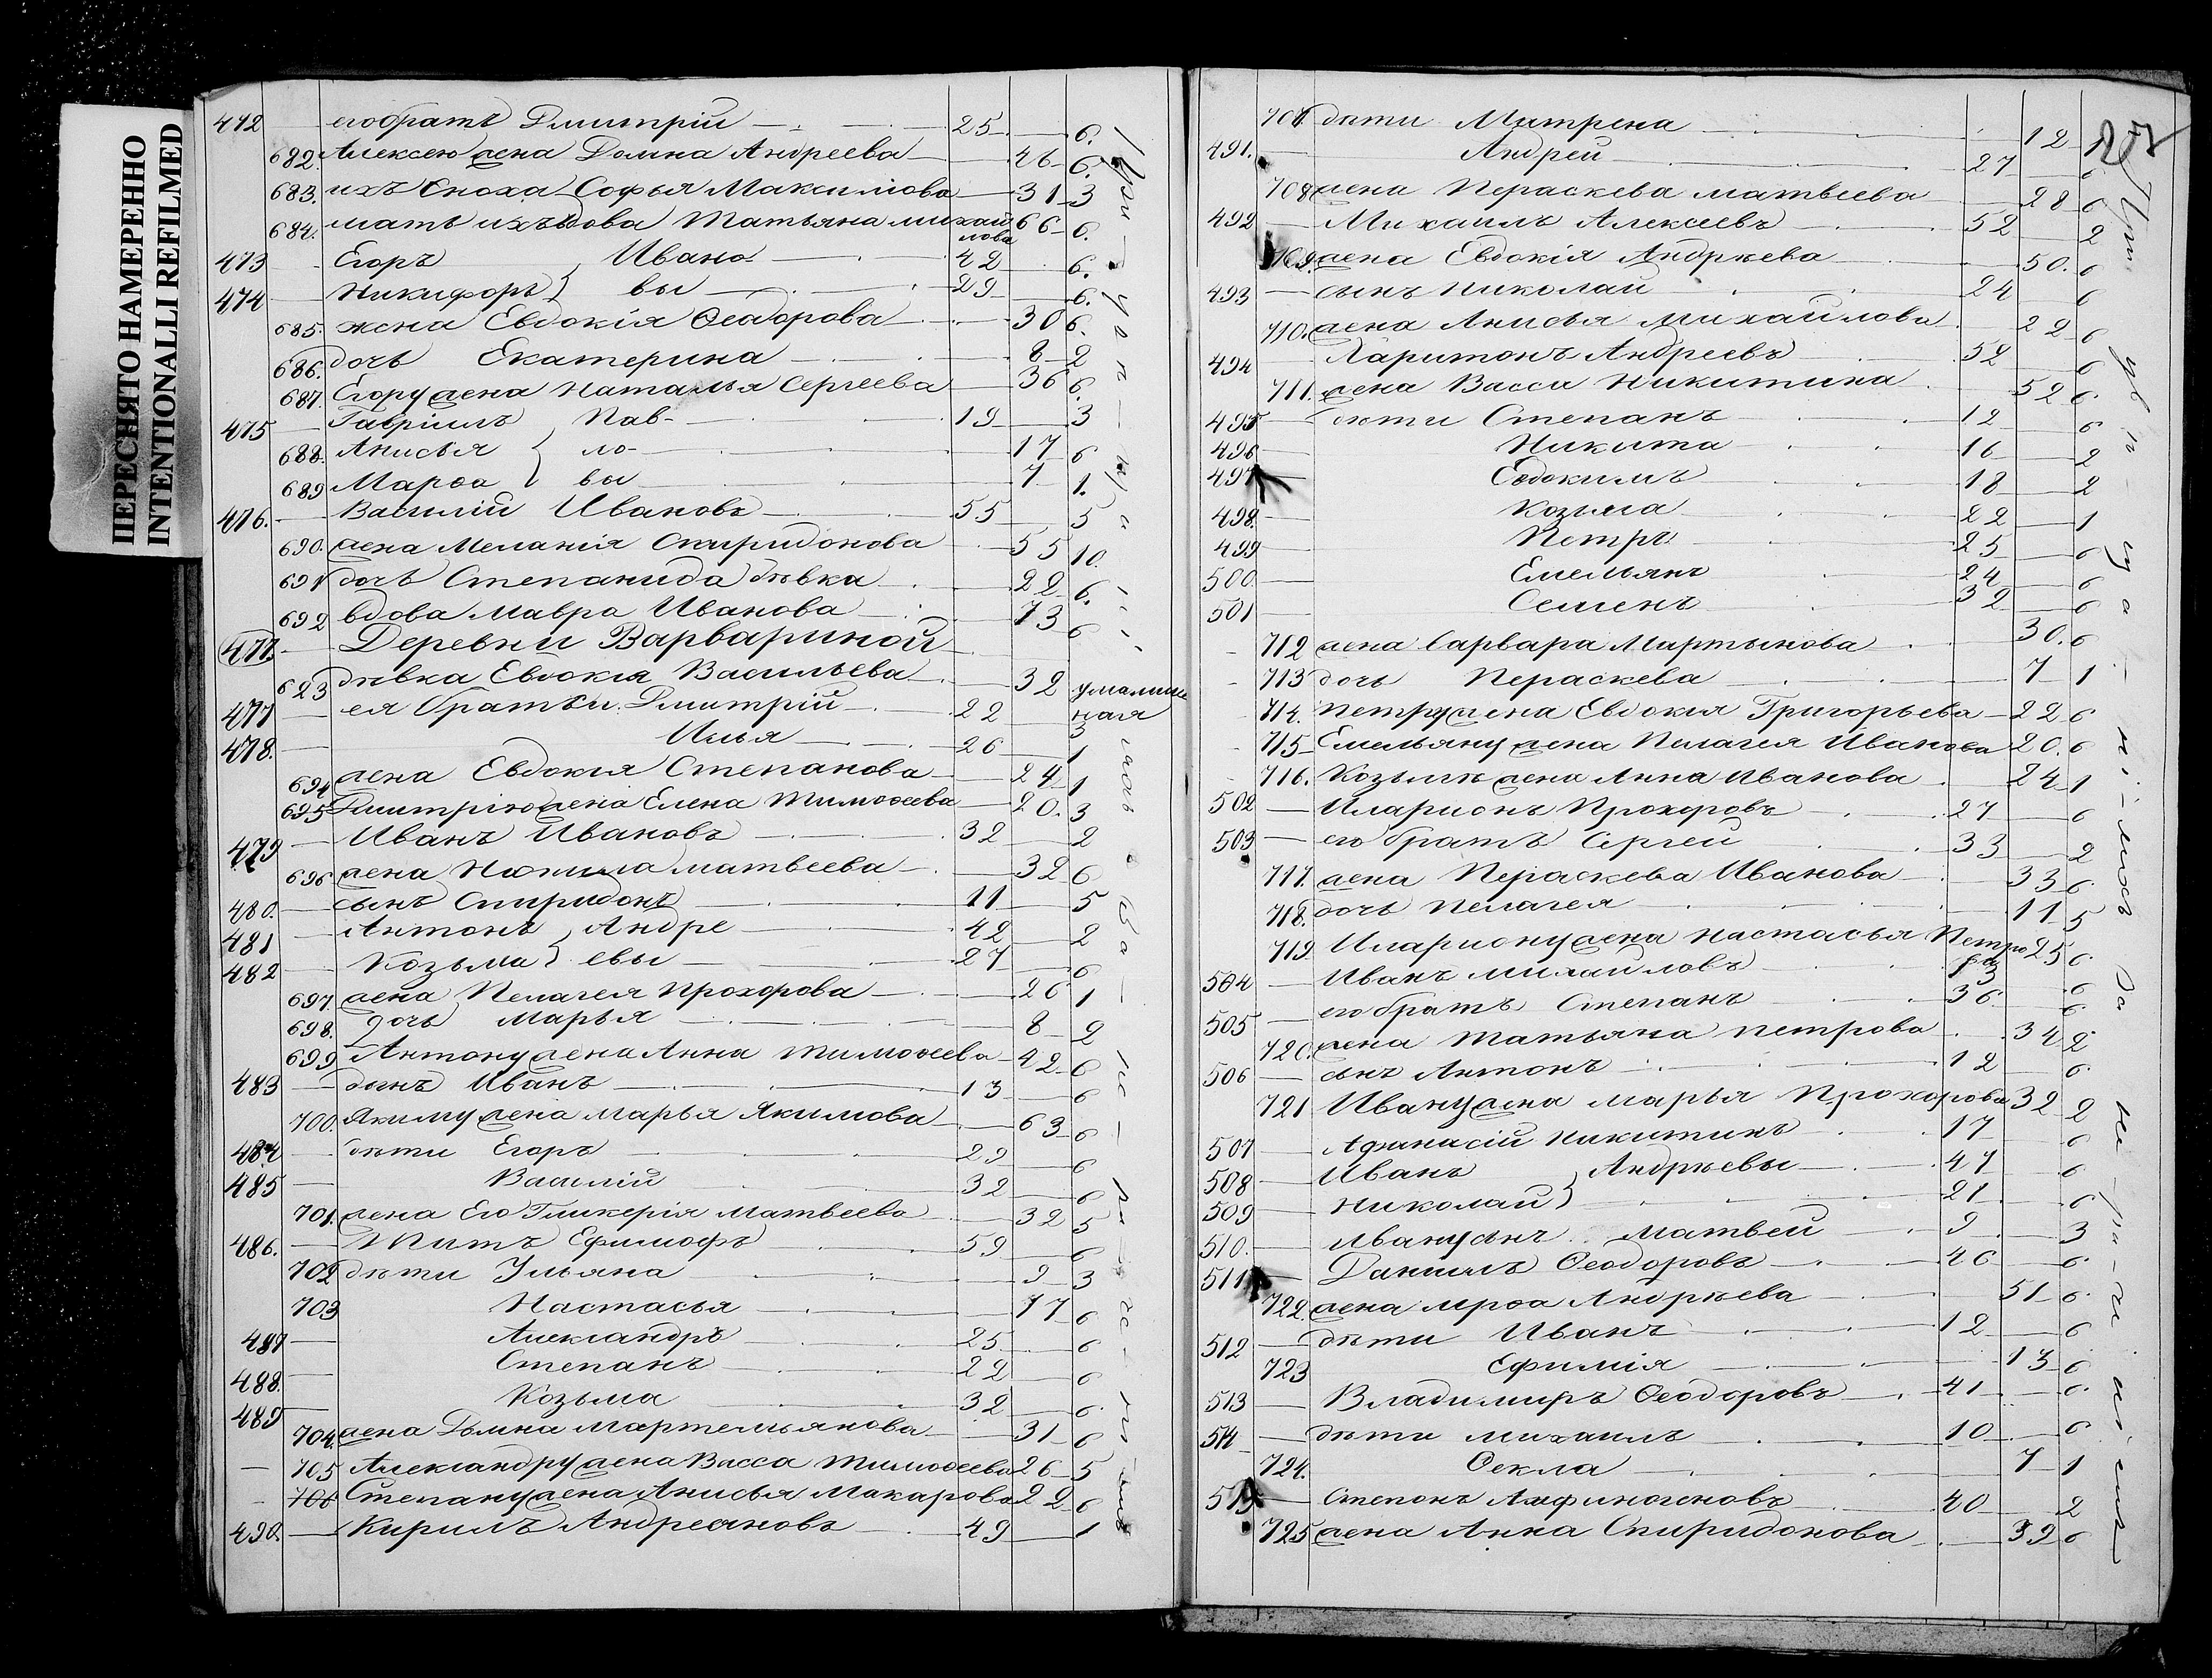 ПЕРЕСНЯТО НАМЕРЕННО
INTENTIONALLI REFILMED
472 — его братъ Дмитрій — 25 — 6.
682. Алексею жена Домна Андреева — 46 — 6.
683. ихъ сноха Софья Максимова — 31 — 3
684. мать ихъ вдова Татьяна михай лова 66 — 6.
473 — Егоръ Ивано — 42 — 6.
474 — Никифоръ } вы — 29 — 6.
685. жена Евдокія Ѳеодорова — 30 6.
686. дочь Екатерина — 8 — 2
687. Егору жена Наталья Сергеева — 36 6.
475 — Гавріилъ Пав- — 19 — 3
688. Анисья } ло- — 17 6
689 Марѳа } вы — 7 1.
476. — Василій Ивановъ — 55 — 5
690. жена Меланія Спиридонова — 55 10.
691 дочь Степанида дѣвка — 22 6.
692 вдова Мавра Иванова — 73 6
477. — Деревни Варвариной
623 дѣвка Евдокія Васильева — 32 умалише
477 — ея братьи Дмитрій — 22 ная 3
478. — Илья — 26 — 1
694 жена Евдокія Степанова — 24 1
695 Дмитрію жена Елена Тимоѳеева — 20. 3
479 — Иванъ Ивановъ — 32 — 2
696 жена матвеева — 32 6
480. — сынъ Спиридонъ — 11 — 5
481 — Антонъ } Андре — 42 — 2
482 — Козьма } евы — 27 — 6
697. жена Пелагея Прохорова — 26 1
698. дочь Марья — 8 — 2
699 Антону жена Анна Тимоѳеева — 42 6
483 — сынъ Иванъ — 13 — 6
700. Якиму жена Марья Якимова — 63 6
484 — дѣти Егоръ — 29 — 6
485 — Василій — 32 — 6
701. жена Его Гликерія Матвеева — 32 5
486. — Титъ Ефимофъ — 59 — 6
702 дѣти Ульяна — 9 — 3
703 Настасья — 17 6
487 — Александръ — 25 — 6
488. — Степанъ — 22 — 6
489 — Козьма — 32 — 6
704. жена Домна Мартемьянова — 31 6
— 705 Александру жена Васса Тимоѳеева 26 — 5
— 706 Степану жена Анисья Макарова 22 6
490. — Кирилъ Андреяновъ — 49 — 1
707. дѣти Матрена — 12
491. — Андрей — 27 — 6
708 жена Пераскева матвеева — 28 6
492 — Михаилъ Алексеевъ — 52 — 2
709. жена Евдокія Андрѣева — 50. 6
493 — сынъ Николай — 24 — 6
710. жена Анисья Михайлова — 22 6
494 — Харитонъ Андреевъ — 52 — 6
711. жена Васса Никитина — 52 6
495 — дѣти Степанъ — 12 — 6
496 — Никита — 16 — 2
497 — Евдокимъ — 18 — 2
498. — Козьма — 22 — 1
499 — Петръ — 25 — 6
500. — Емельянъ — 24 — 6
501 — Семенъ — 32 — 6
— 712 жена Варвара Мартынова — 30. 6
— 713 дочь Пераскева — 7 1
— 714. Петру жена Евдокія Григорьева — 22 6
— 715 Емельяну жена Пелагея Иванова 20. 6
— 716. Козьмѣ жена Анна Иванова — 24 1
502 — Иларионъ Прохоровъ — 27 — 6
503 — его братъ Сергей — 33 — 2
717. жена Пераскева Иванова — 33 6
718. дочь Пелагея — 11 5
719 Илариону жена Настасья Петро ва 25 6
504 — Иванъ михайловъ — 6
505 — его братъ Степанъ — 36 — 6
720. жена Татьяна петрова — 34 2
506 — сынъ Антонъ — 12 — 6
721 Ивану жена марья Прохорова 32 2
507 — Афанасій Никитинъ — 17 — 6
508 — Иванъ } Андрѣевы — 47 — 6
509 — Николай } — 21 — 6
510. — Ивану сынъ Матвей — 9 — 3
511 — Данилъ Ѳеодоровъ — 46 — 6
722. жена мрѳа Андрѣева — 51 6
512 — дѣти Иванъ — 12 — 6
723 Ефимія — 13 6
513 — Владимиръ Ѳеодоровъ — 41 — 6
514 — дѣти михаилъ — 10 — 6
724. Ѳекла — 7 — 1
515 — Степонъ Амфиногеновъ — 40 — 2
725 жена Анна Спиридонова — 39 6